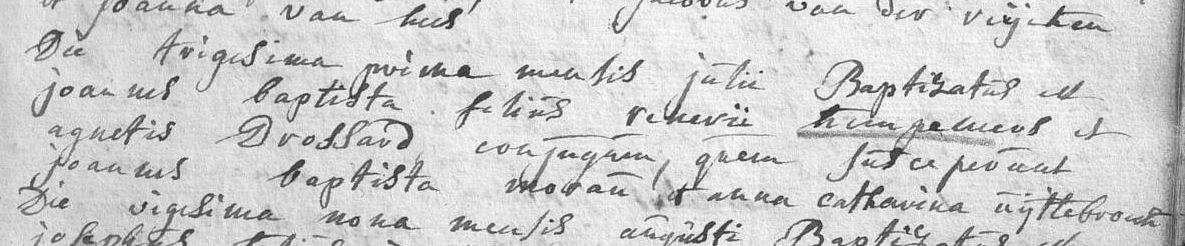 et joanna van hees jacobus van der
Die trigesima prima mensis julii Baptizatus est
joannes baptista filius renerii humpeneers et
agnetis Drossard conjugum, quem susceperunt
joannes baptista moran et anna catharina uyttebrouck
Die vigesima nona mensis augusti Baptizatus est
josephus